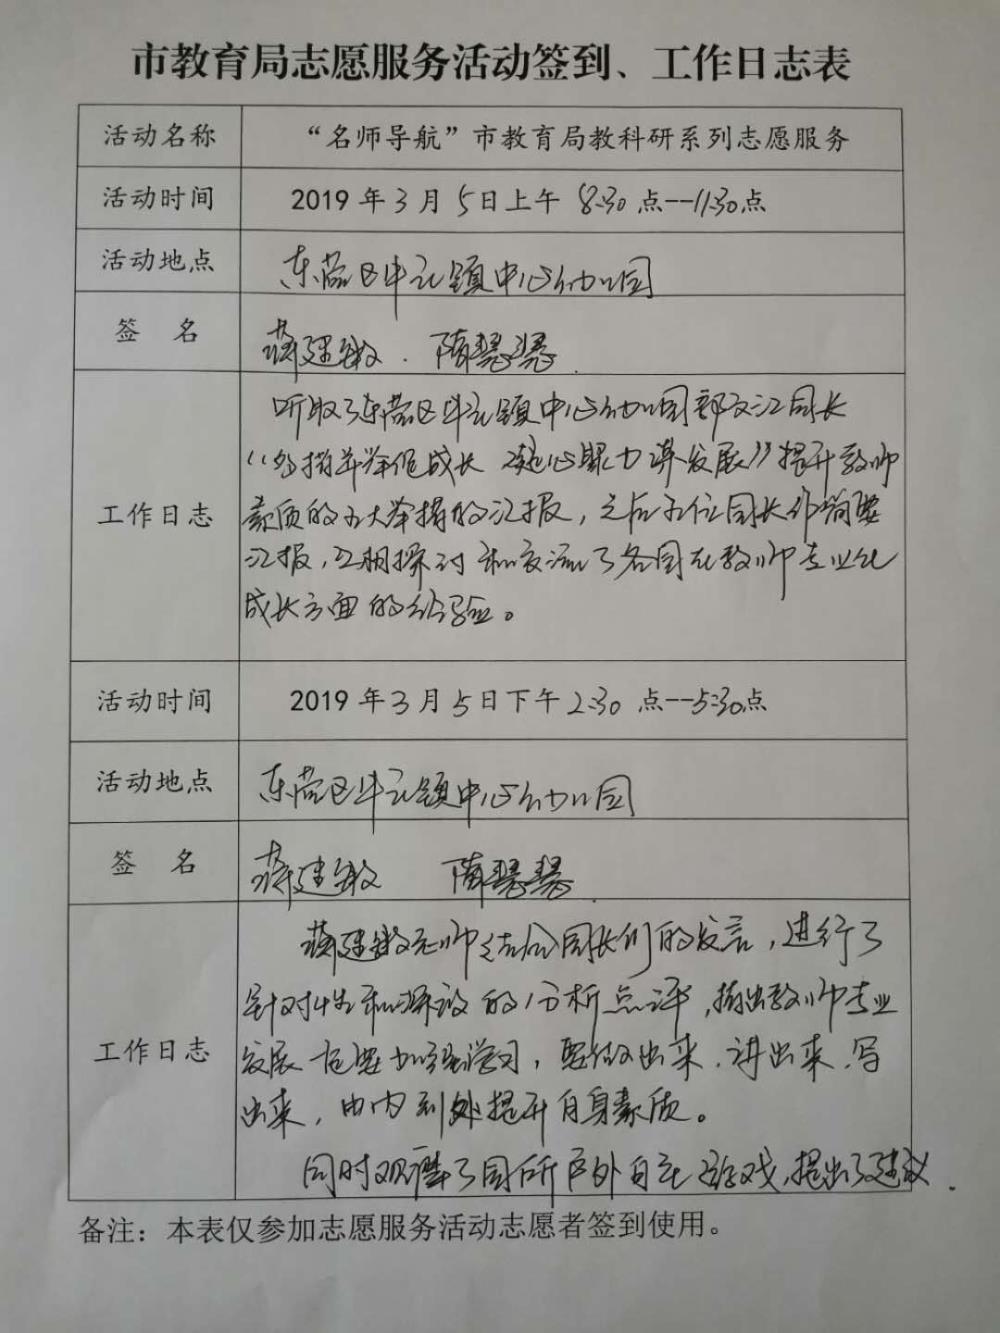 市教育局志愿服务活动签到、工作日志表
活动名称 “名师导航”市教育局教科研系列志愿服务
活动时间 2019 年 3 月 5 日上午 8:30 点--11:30 点
活动地点 东营区牛庄镇中心幼儿园
签 名 蒋建敏 . 隋慧慧 .
听取了东营区牛庄镇中心幼儿园郭文江园长
“多措并举促成长 凝心聚力谋发展”提升教师
工作日志 素质的五大举措的汇报，之后五位园长作简要
汇报，互相探讨和交流了各园在教师专业化
成长方面的经验。
活动时间 2019 年 3 月 5 日下午 2:30 点--5:30 点
活动地点 东营区牛庄镇中心幼儿园
签 名 蒋建敏 隋慧慧 .
蒋建敏老师结合园长们的发言，进行了
针对性和 的分析点评，指出教师专业
工作日志 发展 要加强学习，要做出来、讲出来、写
出来，由内到外提升自身素质。
同时观摩了园所户外自主游戏，提出了建议.
备注：本表仅参加志愿服务活动志愿者签到使用。